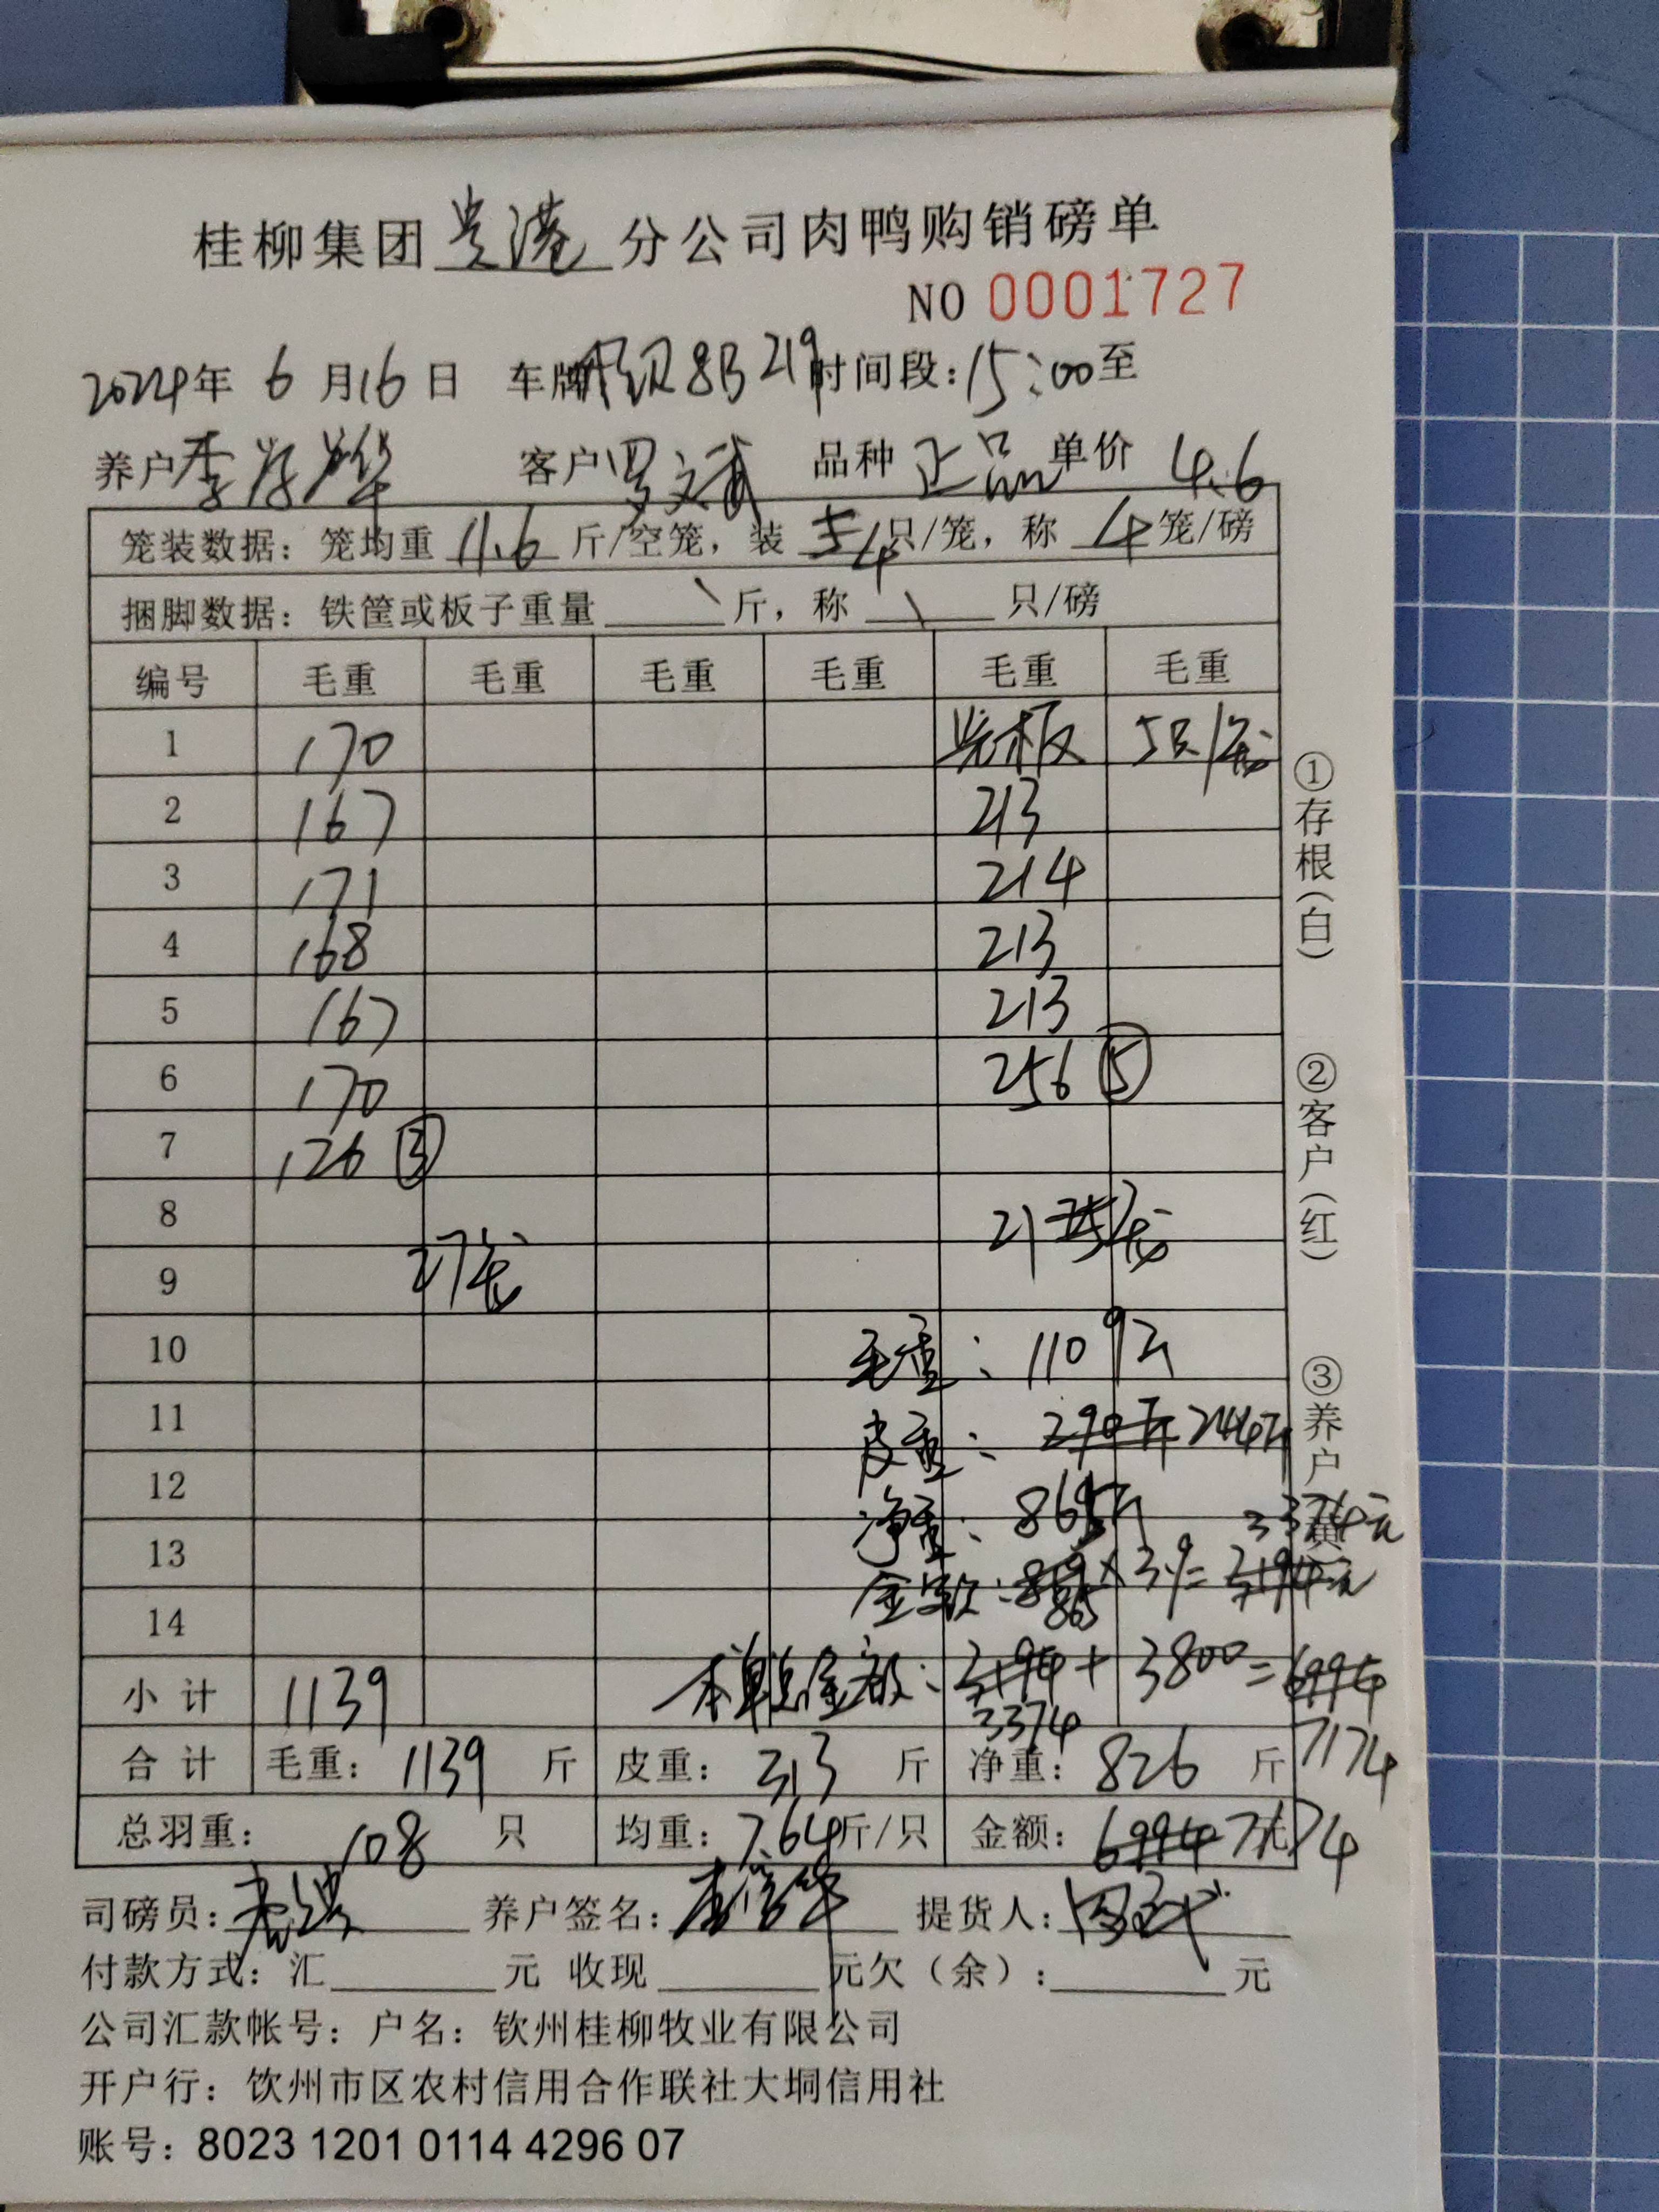 桂柳集团贵港分公司肉鸭购销磅单
NO 0001727
2024年 6 月16日 车牌 8B219 时间段:15:00至
养户李 华 客户罗文武 品种 正品 单价 4.6
笼装数据: 笼均重 11.6 斤/空笼, 装 4只/笼, 称 4 笼/磅
捆脚数据: 铁筐或板子重量 \ 斤, 称 \ 只/磅
编号 毛重 毛重 毛重 毛重 毛重 毛重
1 170 光板 5只/笼
2 167 213
3 171 214
4 168 213
5 167 213
6 170 256 ⑤
7 126 ③
8 21 笼
9 27笼
10 毛重: 1109斤
11 皮重: 290斤 244斤
12 净重: 865斤 3374元
13 金额: 865×3.9= 3194元
14
小计 1139 本单总金额: 3194 + 3800 = 6994
3374
合计 毛重: 1139 斤 皮重: 313 斤 净重: 826 斤 7174
总羽重: 108 只 均重: 7.64斤/只 金额: 6994 7174元
司磅员: 养户签名: 提货人:
付款方式: 汇 元 收现 元欠(余): 元
公司汇款帐号: 户名: 钦州桂柳牧业有限公司
开户行: 钦州市区农村信用合作联社大垌信用社
账号: 8023 1201 0114 4296 07
①存根(白)
②客户(红)
③养户(黄)